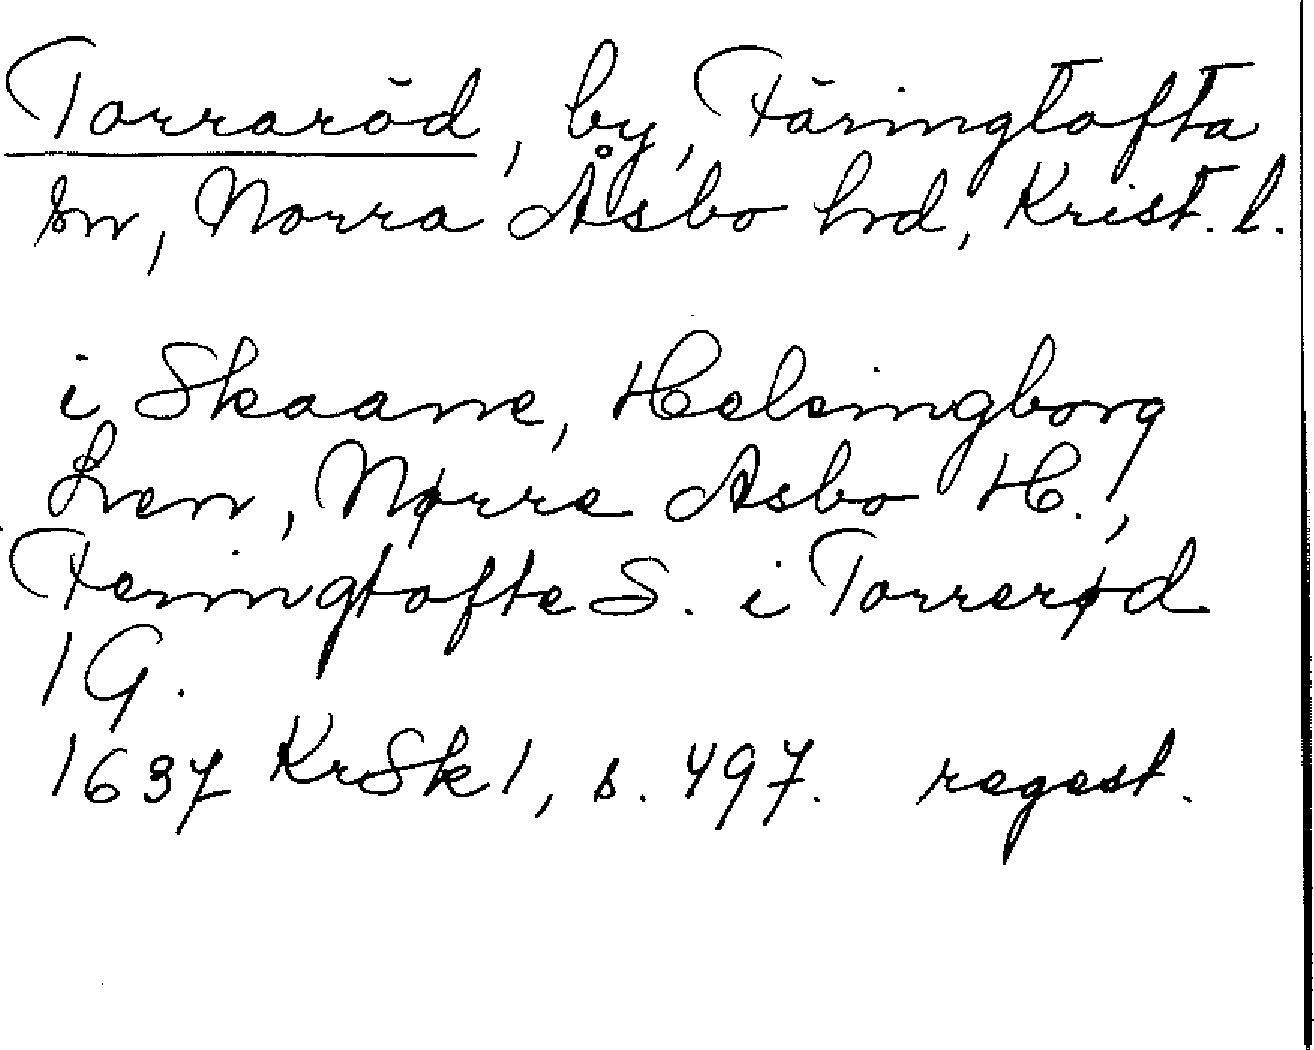 Torraröd, by, Färingtofta
sn, Norra Åsbo hrd, Krist. l.
i Skaane, Helsingborg
Len, Nørre Asbo H.,
Feringtofte S. i Torrerød
1 G.
1637 KrSk 1, s. 497. regest.